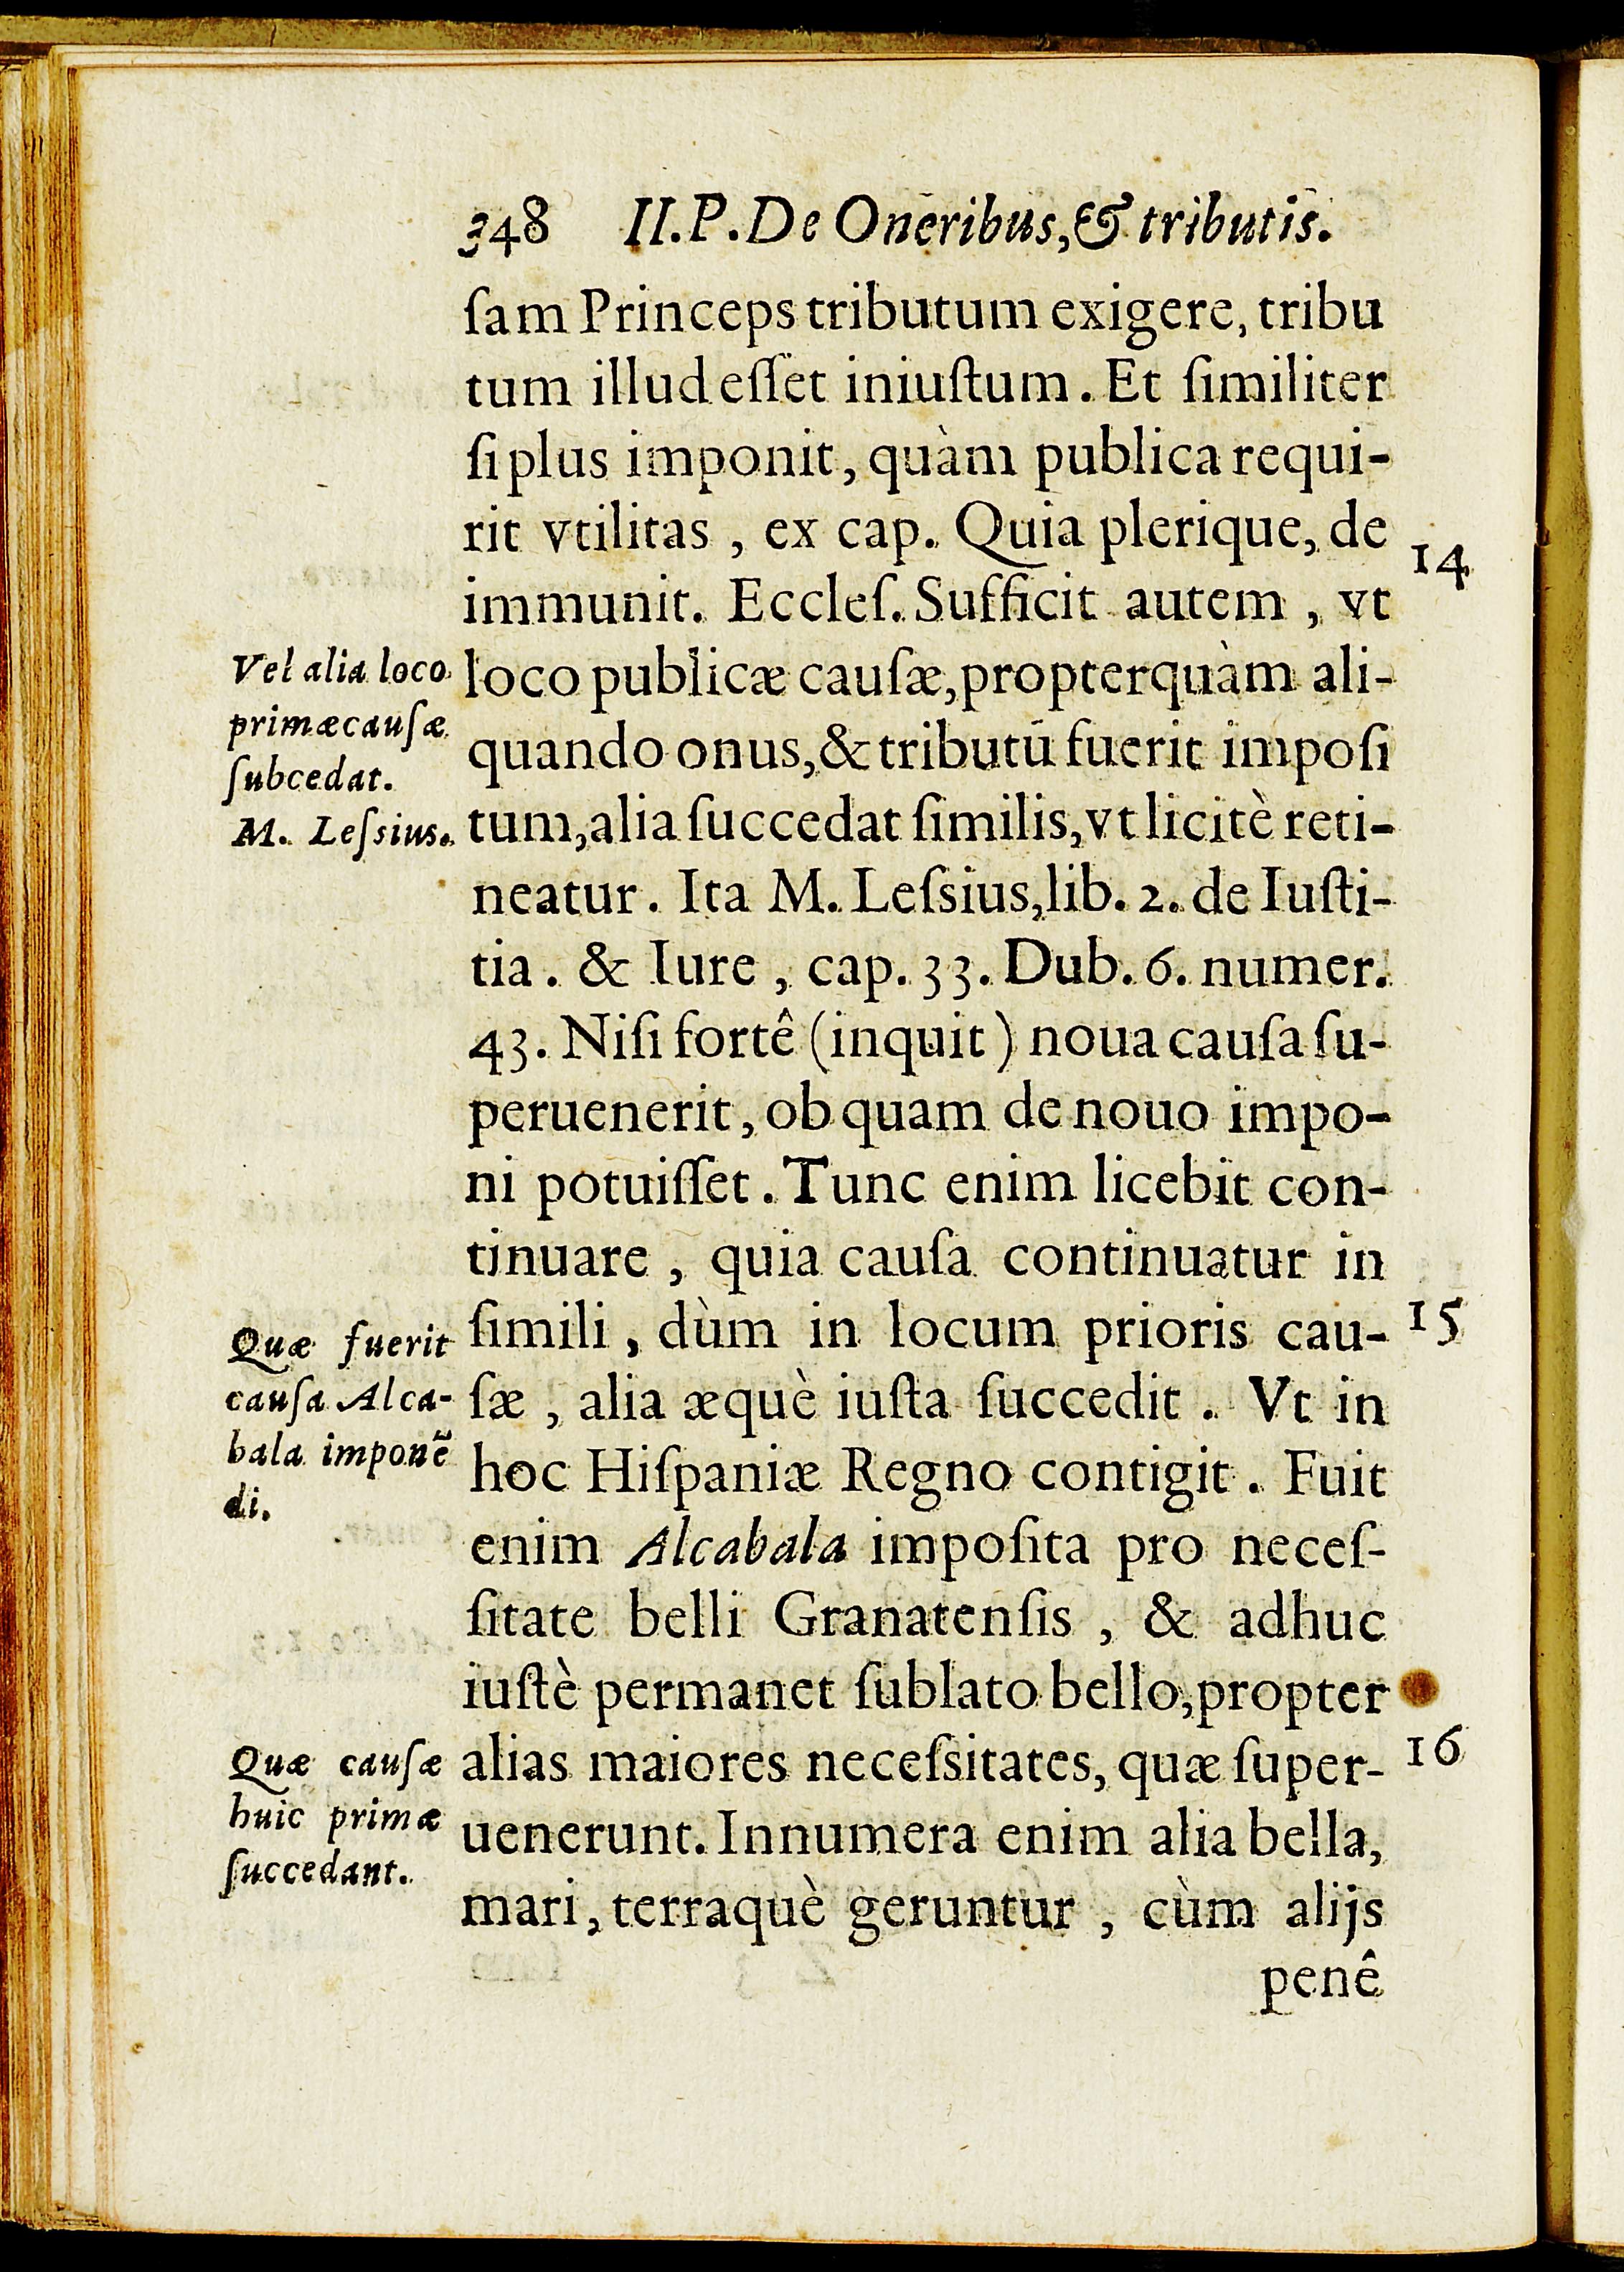 348 II.P.De Oneribus,& tributis.
ſam Princeps tributum exigere, tribu
tum illud eſſet iniuſtum. Et ſimiliter
ſi plus imponit, quàm publica requi-
rit vtilitas, ex cap. Quia plerique, de
14
immunit. Eccleſ. Sufficit autem, vt
loco publicæ cauſæ, propterquàm ali-
quando onus, & tributū fuerit impoſi
tum, alia ſuccedat ſimilis, vt licitè reti-
neatur. Ita M. Leſsius, lib. 2. de Iuſti-
tia. & Iure, cap. 33. Dub. 6. numer.
43. Niſi fortê (inquit) noua cauſa ſu-
peruenerit, ob quam de nouo impo-
ni potuiſſet. Tunc enim licebit con-
tinuare, quia cauſa continuatur in
ſimili, dùm in locum prioris cau-
15
ſæ, alia æquè iuſta ſuccedit. Vt in
hoc Hiſpaniæ Regno contigit. Fuit
enim Alcabala impoſita pro neceſ-
ſitate belli Granatenſis, & adhuc
iuſtè permanet ſublato bello, propter
alias maiores neceſsitates, quæ ſuper-
16
uenerunt. Innumera enim alia bella,
mari, terraquè geruntur, cùm alijs
penê
Vel alia loco
primæ cauſæ
ſubcedat.
M. Leſsius.
Quæ fuerit
cauſa Alca-
bala imponē
di.
Quæ cauſæ
huic primæ
ſuccedant.